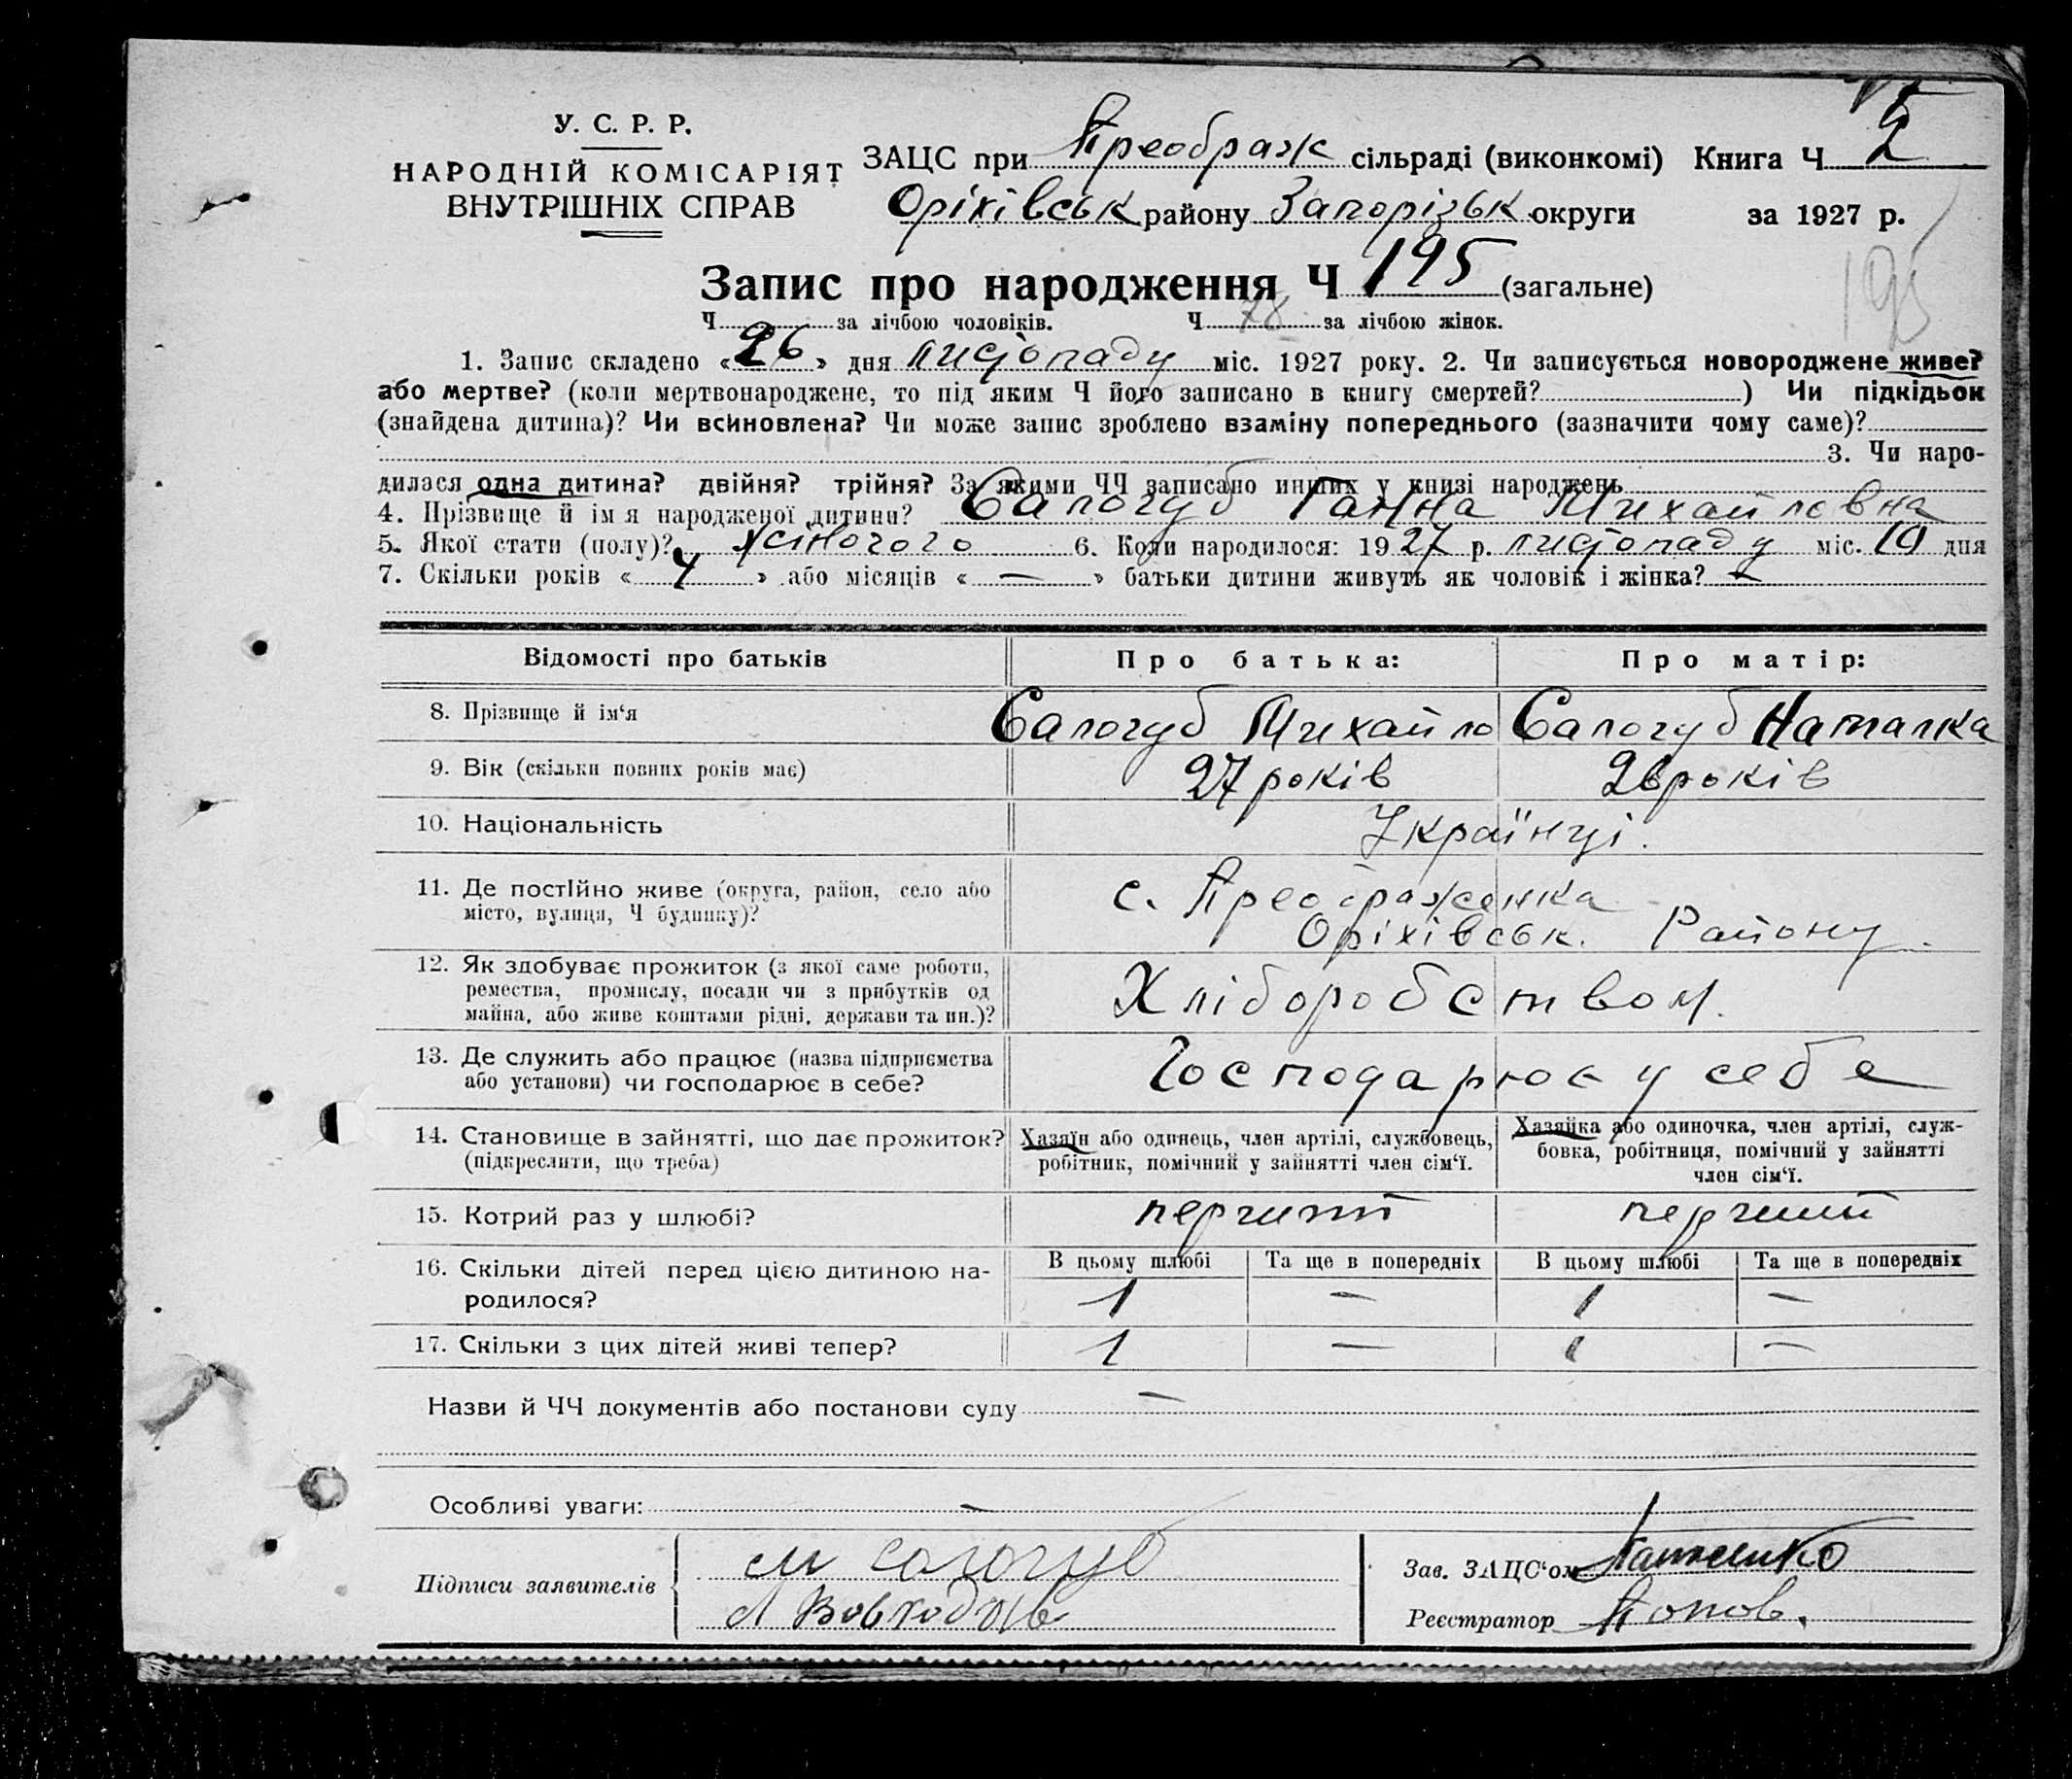 У. С. Р. Р.
НАРОДНІЙ КОМІСАРІЯТ
ВНУТРІШНІХ СПРАВ
ЗАЦС при Преображ сільраді (виконкомі) Книга Ч 2
Оріхівськ району Запорізьк округи за 1927 р.
Запис про народження Ч 195 (загальне)
195
Ч за лічбою чоловіків. Ч 78 за лічбою жінок.
1. Запис складено «26» дня листопаду міс. 1927 року. 2. Чи записується новороджене живе?
або мертве? (коли мертвонароджене, то під яким Ч його записано в книгу смертей? ) Чи підкідьок
(знайдена дитина)? Чи всиновлена? Чи може запис зроблено взаміну попереднього (зазначити чому саме)?
3. Чи наро-
дилася одна дитина? двійня? трійня? За якими ЧЧ записано инших у книзі народжень
4. Прізвище й ім я народженої дитини? Сологуб Ганна Михайловна
5. Якої стати (полу)? жіночого 6. Коли народилося: 1927 р. листопаду міс. 19 дня
7. Скільки років « 4 » або місяців « — » батьки дитини живуть як чоловік і жінка? —
Відомості про батьків Про батька: Про матір:
8. Прізвище й ім‘я Сологуб Михайло Сологуб Наталка
9. Вік (скільки повних років має) 27 років 26 років
10. Національність Українці.
11. Де постійно живе (округа, район, село або с. Преображенка
місто, вулиця, Ч будинку)? Оріхівськ. Району.
12. Як здобуває прожиток (з якої саме роботи,
ремества, промислу, посади чи з прибутків од Хліборобством.
майна, або живе коштами рідні, держави та ин.)?
13. Де служить або працює (назва підприємства Господарює у себе
або установи) чи господарює в себе?
14. Становище в зайнятті, що дає прожиток? Хазяїн або одинець, член артілі, службовець, Хазяйка або одиночка, член артілі, служ-
(підкреслити, що треба) робітник, помічний у зайнятті член сім‘ї. бовка, робітниця, помічний у зайнятті
член сім‘ї.
15. Котрий раз у шлюбі? перший перший
16. Скільки дітей перед цією дитиною на- В цьому шлюбі Та ще в попередніх В цьому шлюбі Та ще в попередніх
родилося? 1 — 1 —
17. Скільки з цих дітей живі тепер? 1 — 1 —
Назви й ЧЧ документів або постанови суду —
Особливі уваги: —
Підписи заявителів М Сологуб
Зав. ЗАЦС‘ом
Реєстратор Попов.